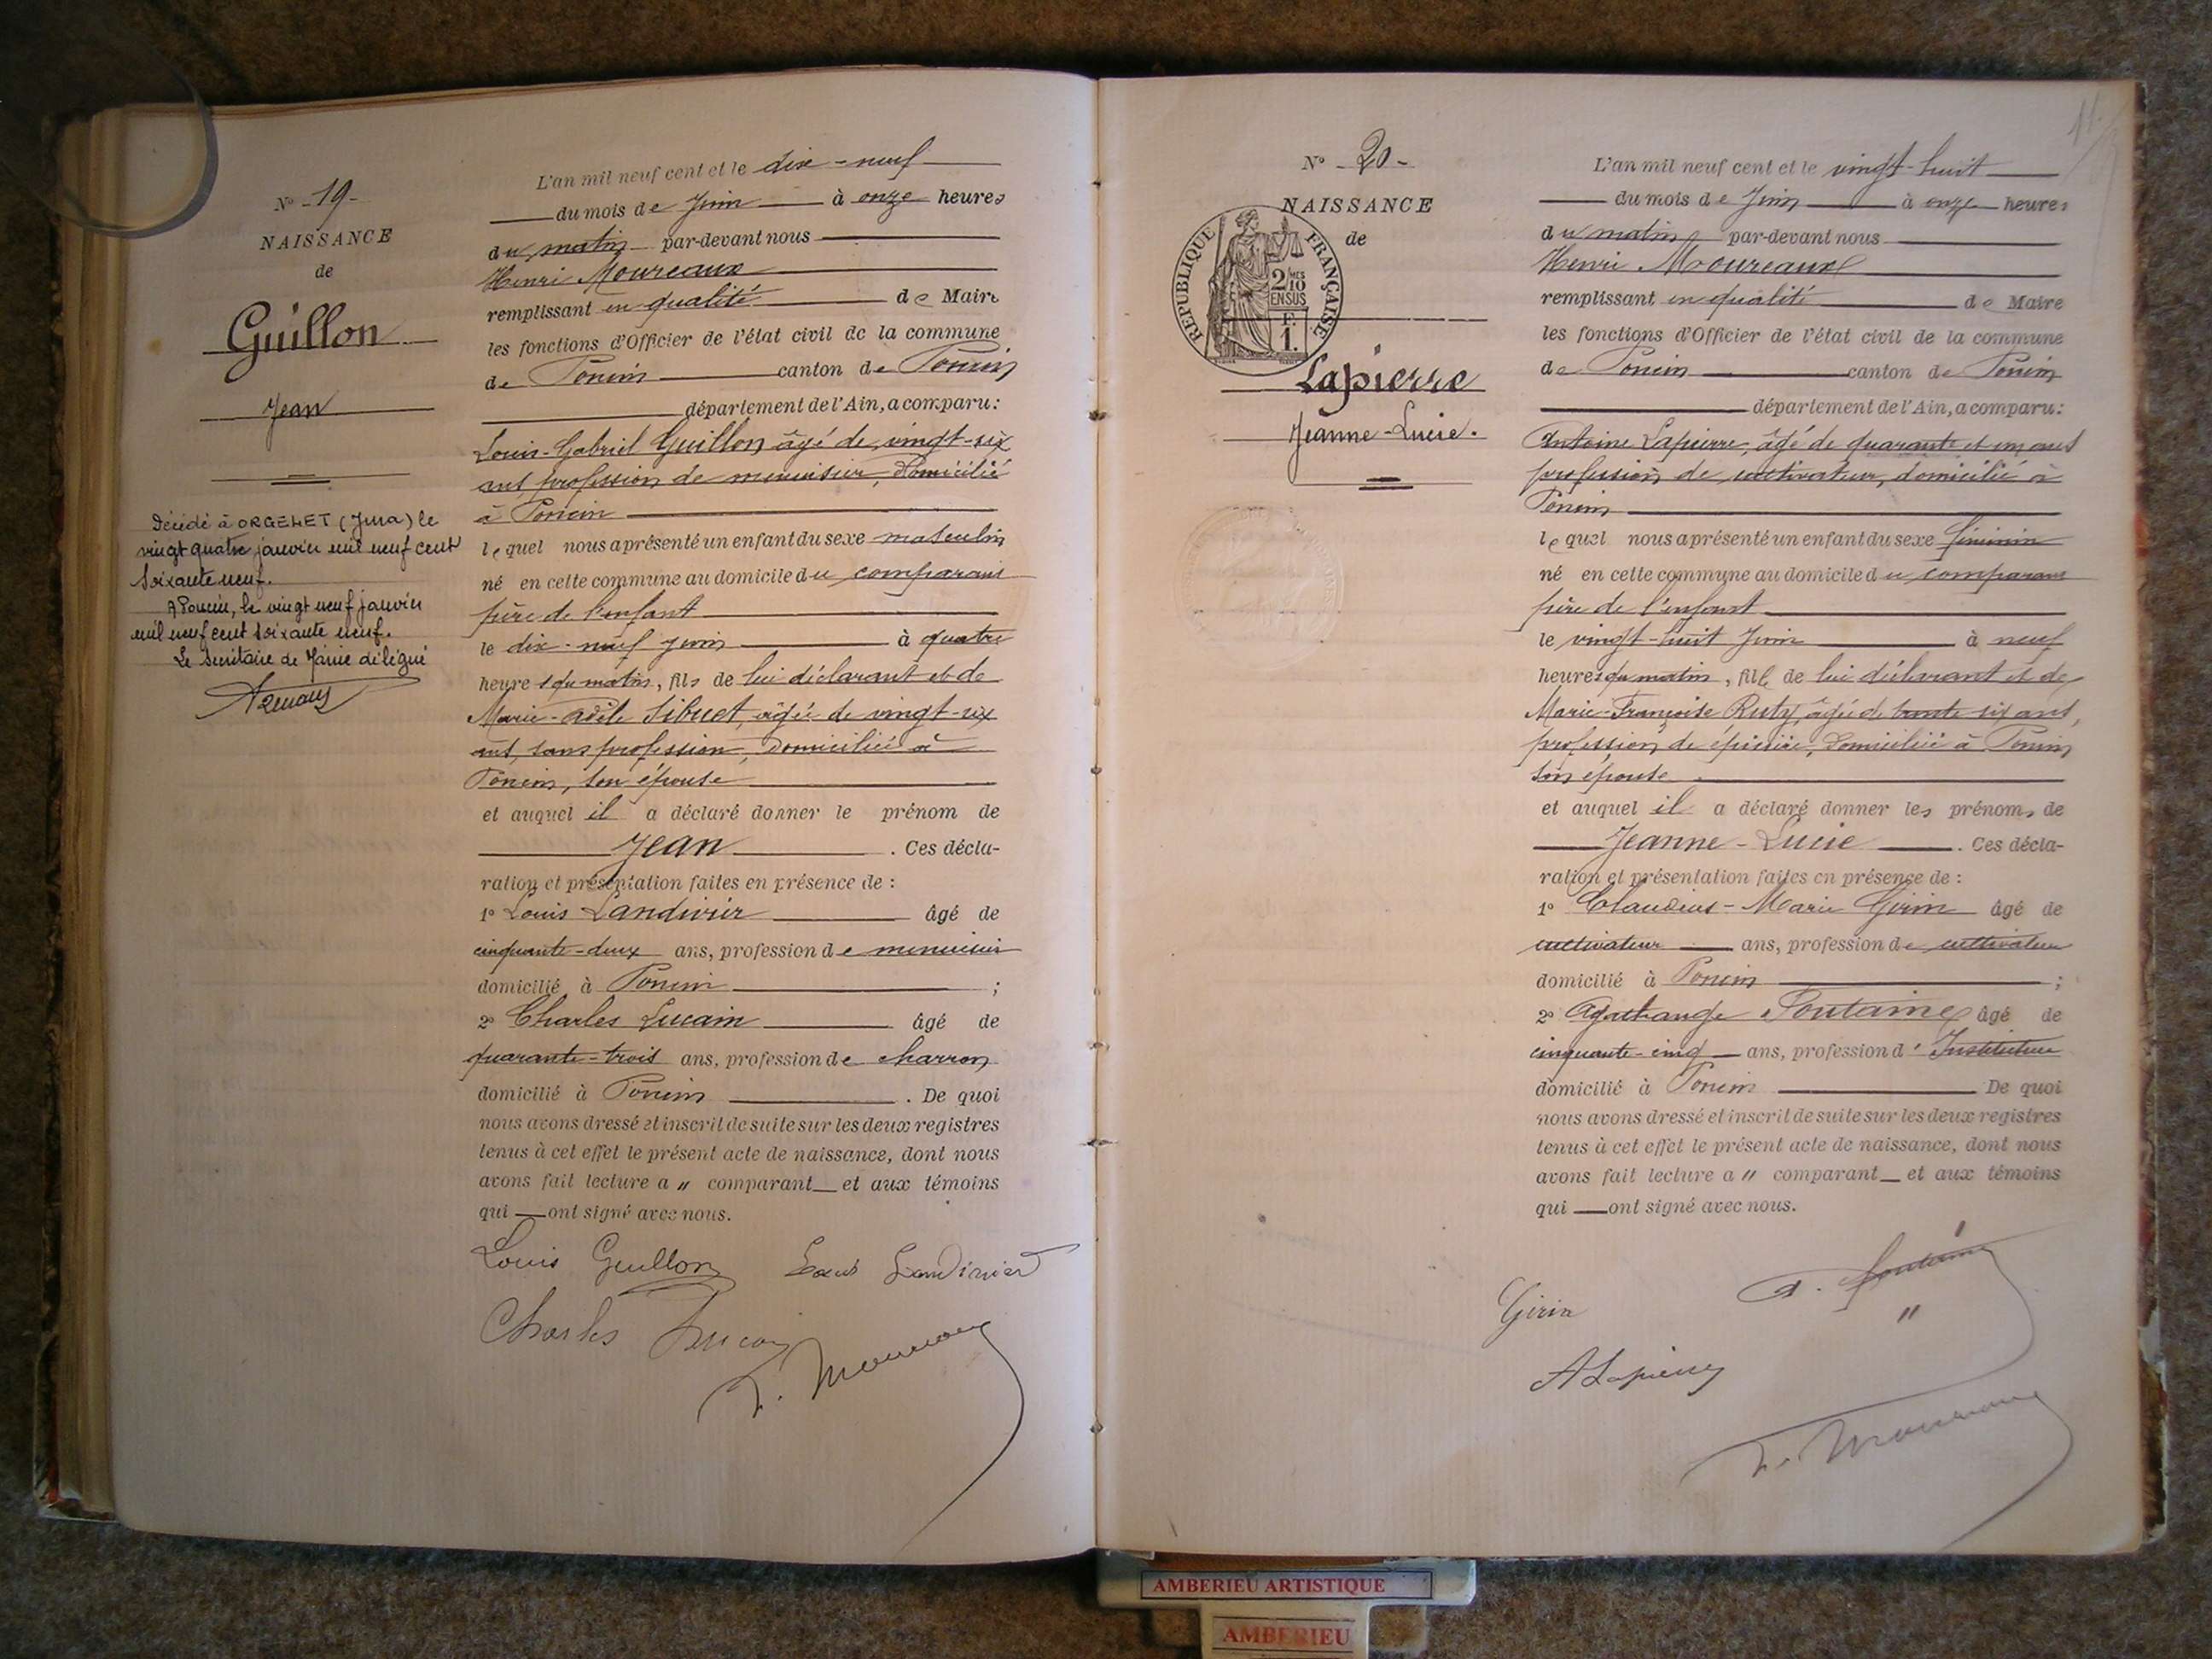 N° 19-
NAISSANCE
de
Guillon
Jean
Décédé à ORGELET (Jura) le
vingt quatre janvier mil neuf cent
soixante neuf.
A Poncin, le vingt neuf janvier
mil neuf cent soixante neuf.
Le Secrétaire de Mairie délégué
L'an mil neuf cent et le dix-neuf
du mois de Juin à onze heures
du matin par-devant nous
Henri Moureaux
remplissant en qualité de Maire
les fonctions d'Officier de l'état civil de la commune
de Poncin canton de Poncin
département de l'Ain, a comparu:
Louis-Gabriel Guillon âgé de vingt-six
ans, profession de menuisier, domicilié
à Poncin
lequel nous a présenté un enfant du sexe masculin
né en cette commune au domicile du comparant
père de l'enfant
le dix-neuf juin à quatre
heures du matin, fils de lui déclarant et de
Marie-Adèle Sibuet, âgée de vingt-six
ans, sans profession, domiciliée à
Poncin, son épouse
et auquel il a déclaré donner le prénom de
Jean. Ces décla-
ration et présentation faites en présence de :
1° Louis Landivier âgé de
cinquante-deux ans, profession de menuisier
domicilié à Poncin ;
2° Charles Lucain âgé de
quarante-trois ans, profession de charron
domicilié à Poncin. De quoi
nous avons dressé et inscrit de suite sur les deux registres
tenus à cet effet le présent acte de naissance, dont nous
avons fait lecture a " comparant et aux témoins
qui ont signé avec nous.
Louis Guillon Louis Landivier
Charles Lucain
N° -20-
NAISSANCE
de
REPUBLIQUE FRANÇAISE
2/10 MES
EN SUS
F.
1.
Lapierre
Jeanne-Lucie.
L'an mil neuf cent et le vingt-huit
du mois de Juin à onze heures
du matin par-devant nous
Henri Moureaux
remplissant en qualité de Maire
les fonctions d'Officier de l'état civil de la commune
de Poncin canton de Poncin
département de l'Ain, a comparu:
Antoine Lapierre, âgé de quarante et un ans
profession de cultivateur, domicilié à
Poncin
lequel nous a présenté un enfant du sexe féminin
né en cette commune au domicile du comparant
père de l'enfant
le vingt-huit Juin à neuf
heures du matin, fille de lui déclarant et de
Marie-Françoise Ruty, âgée de trente six ans,
profession de épicière, domiciliée à Poncin
son épouse
et auquel il a déclaré donner les prénoms de
Jeanne-Lucie. Ces décla-
ration et présentation faites en présence de :
1° Claudius-Marie Girin âgé de
cultivateur ans, profession de cultivateur
domicilié à Poncin ;
2° Agathange Fontaine âgé de
cinquante-cinq ans, profession d'Instituteur
domicilié à Poncin De quoi
nous avons dressé et inscrit de suite sur les deux registres
tenus à cet effet le présent acte de naissance, dont nous
avons fait lecture a " comparant et aux témoins
qui ont signé avec nous.
A. Fontaine
Girin
ALapierre
AMBERIEU ARTISTIQUE
AMBERIEU